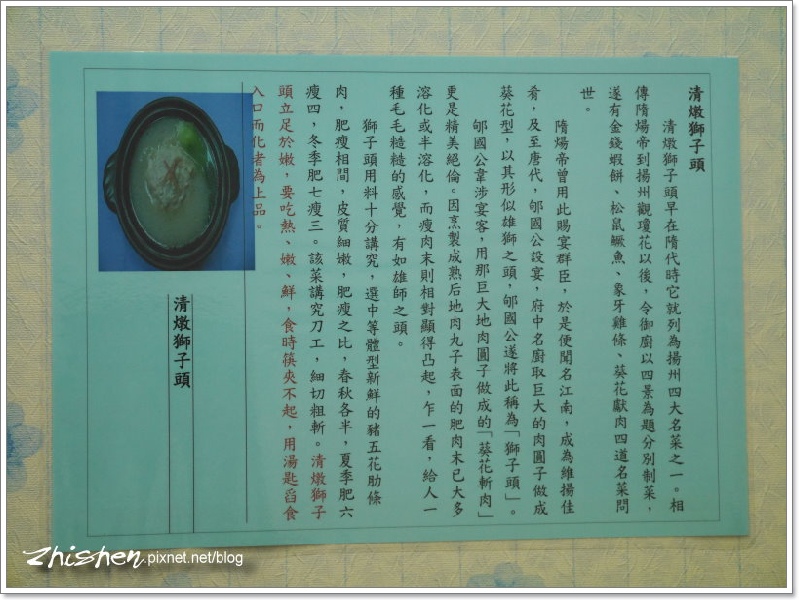 清燉獅子頭
清燉獅子頭早在隋代時它就列為揚州四大名菜之一。相
傳隋煬帝到揚州觀瓊花以後，令御廚以四景為題分別制菜，
遂有金錢蝦餅、松鼠鱖魚、象牙雞條、葵花獻肉四道名菜問
世。
隋煬帝曾用此賜宴群臣，於是便聞名江南，成為維揚佳
肴，及至唐代，郇國公設宴，府中名廚取巨大的肉圓子做成
葵花型，以其形似雄獅之頭，郇國公遂將此稱為「獅子頭」。
郇國公韋涉宴客，用那巨大地肉圓子做成的「葵花斬肉」
更是精美絕倫。因烹製成熟后地肉丸子表面的肥肉末已大多
溶化或半溶化，而瘦肉末則相對顯得凸起，乍一看，給人一
種毛毛糙糙的感覺，有如雄師之頭。
獅子頭用料十分講究，選中等體型新鮮的豬五花肋條
肉，肥瘦相間，皮質細嫩，肥瘦之比，春秋各半，夏季肥六
瘦四，冬季肥七瘦三。該菜講究刀工，細切粗斬。清燉獅子
頭立足於嫩，要吃熱、嫩、鮮，食時筷夾不起，用湯匙舀食
入口而化者為上品。
清燉獅子頭
zhishen.pixnet.net/blog